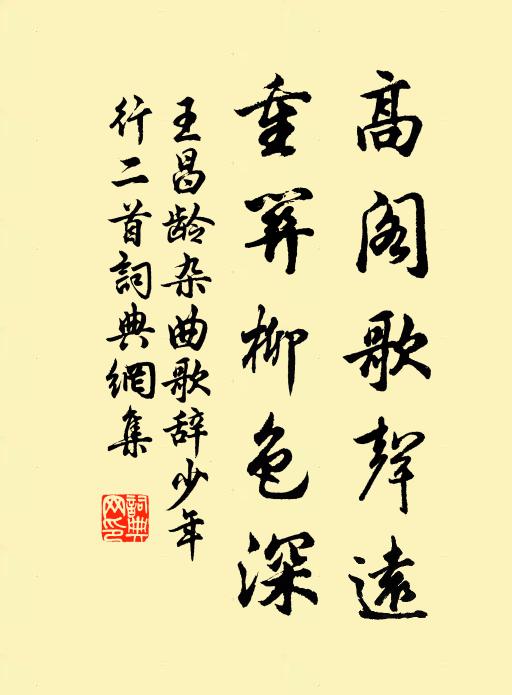 高阁歌聲遠
重關柳色深
王昌龄杂曲歌辞少年
行二首詞典網集
詞典
网印